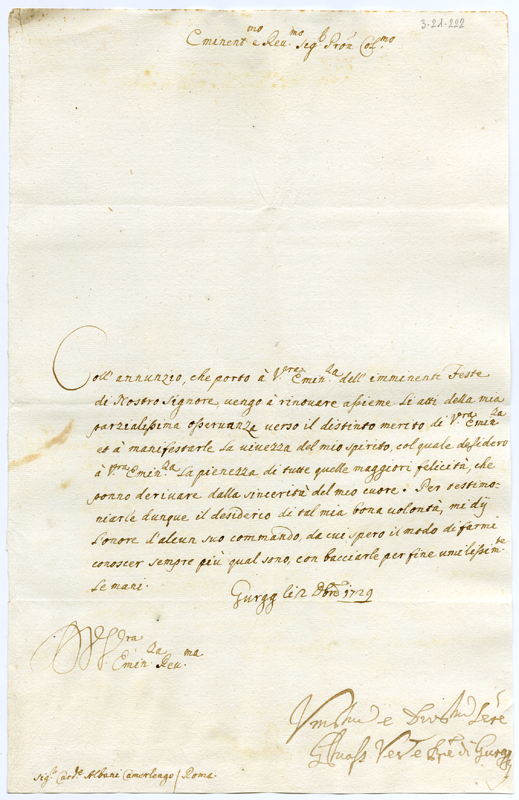 3-21-222
Eminent.mo e Reu.mo Sig.r Pron Col.mo
Coll'annunzio, che porto à V.ra Emin.za dell'imminenti Feste
di Nostro Signore, vengo à rinouare assieme li atti della mia
parzialissima osseruanza verso il distinto merito di V.ra Emin.za
et à manifestarle la viuezza del mio spirito, col quale desidero
à V.ra Emin.za la pienezza di tutte quelle maggiori felicità, che
ponno deriuare dalla sincerità del meo cuore. Per testimo-
niarle dunque il desiderio di tal mia bona volontà, mi dij
l'onore d'alcun suo commando, da cui spero il modo di farmi
conoscer sempre più qual sono, con bacciarle per fine umilissim.te
le mani.
Gurgg li 2 Dbre 1729
V.ra
Emin.za Reu.ma
e
di Gurgg
Sig.r Card.e Albani Camerlengo / Roma.